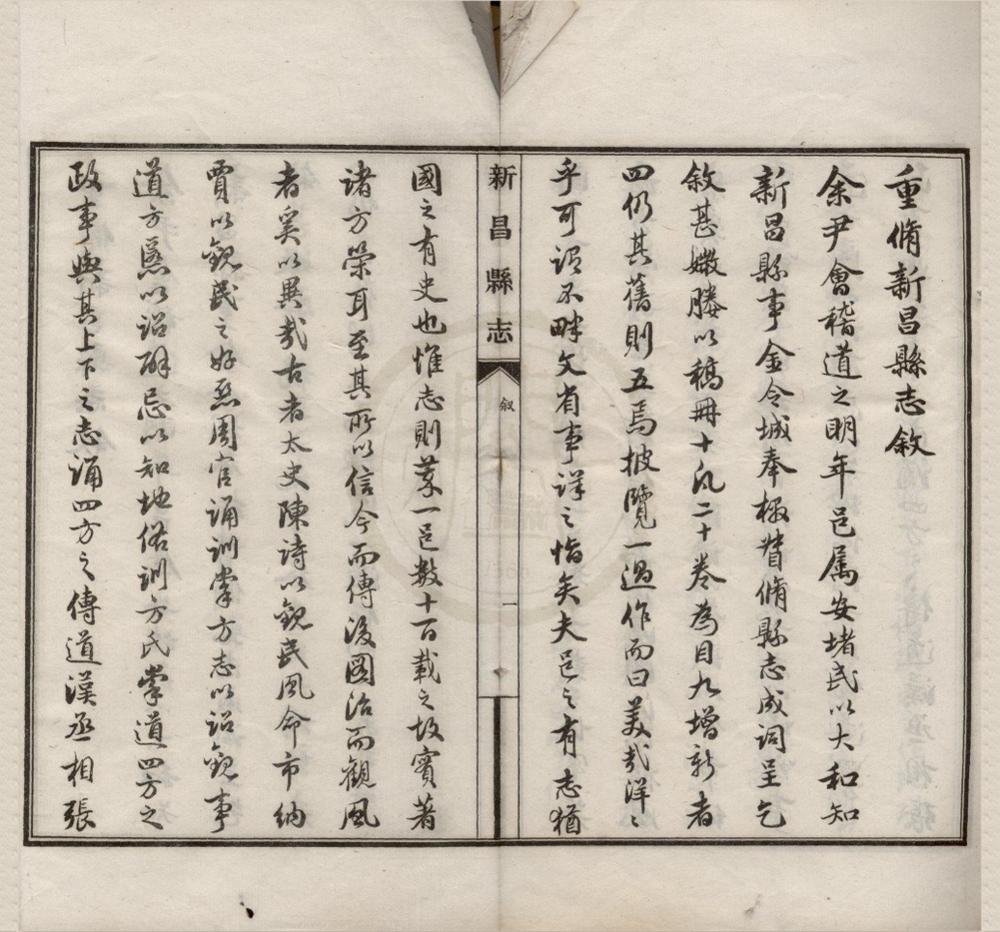 重脩新昌縣志敘
余尹會稽道之明年邑属安堵民以大和知
新昌縣事金令城奉檄督脩縣志成詞呈乞
敘甚媺賸以稿冊十凡二十卷為目九增新者
四仍其舊則五焉披覽一過作而曰美哉洋〻
乎可謂不畔文省事詳之恉矣夫邑之有志猶
新昌縣志
敘
一
國之有史也惟志則萃一邑数十百載之故實著
諸方策耳至其所以信今而傳後圖治而觀風
者奚以異哉古者太史陳詩以觀民風命市納
賈以觀民之好惡周官誦訓掌方志以詔觀事
道方慝以詔辟忌以知地俗訓方氏掌道四方之
政事與其上下之志誦四方之傳道漢丞相張